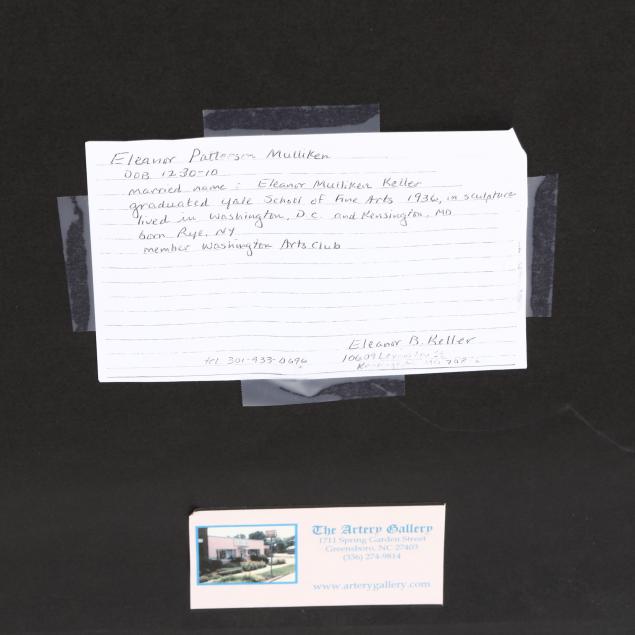 Eleanor Patterson Mulliken
DOB 12-30-10
married name: Eleanor Mulliken Keller
graduated Yale School of Fine Arts 1936, in sculpture
lived in Washington, D.C. and Kensington, MD
born Rye, NY
member Washington Arts Club
Eleanor B. Keller
tel 301-933-0696
10609
Kensington MD
The Artery Gallery
1711 Spring Garden Street
Greensboro, NC 27403
(336) 274-9814
www.arterygallery.com